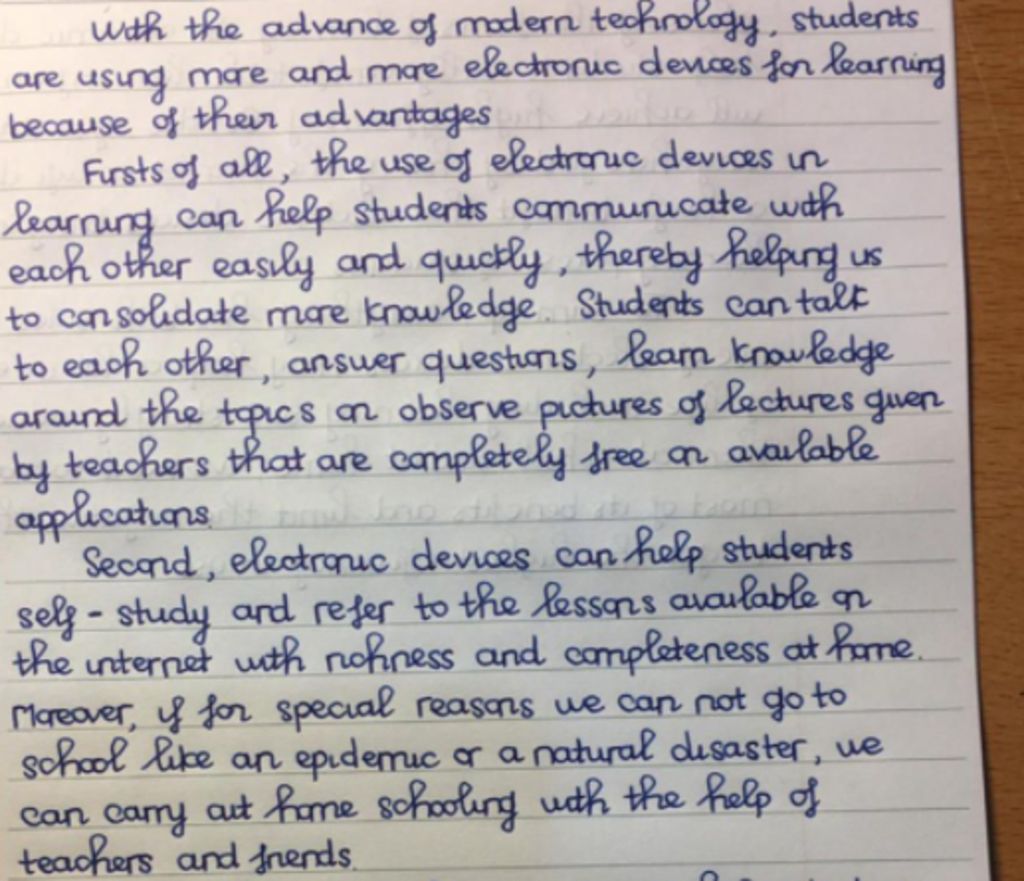 With the advance of modern technology, students
are using more and more electronic devices for learning
because of their advantages
Firsts of all, the use of electronic devices in
learning can help students communicate with
each other easily and quickly, thereby helping us
to consolidate more knowledge. Students can talk
to each other, answer questions, learn knowledge
around the topics or observe pictures of lectures given
by teachers that are completely free on available
applications
Second, electronic devices can help students
self - study and refer to the lessons available on
the internet with richness and completeness at home.
Moreover, if for special reasons we can not go to
school like an epidemic or a natural disaster, we
can carry out home schooling with the help of
teachers and friends.